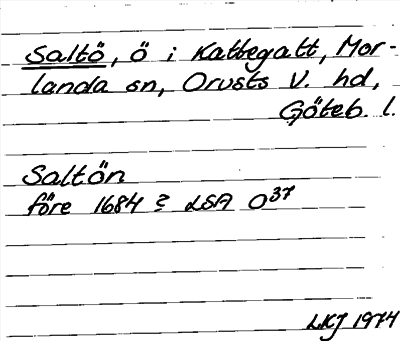 Saltö, ö i Kattegatt, Mor-
landa sn, Orusts V. hd,
Göteb. l.
Saltön
före 1684 ? LSA O37
LKJ 1974